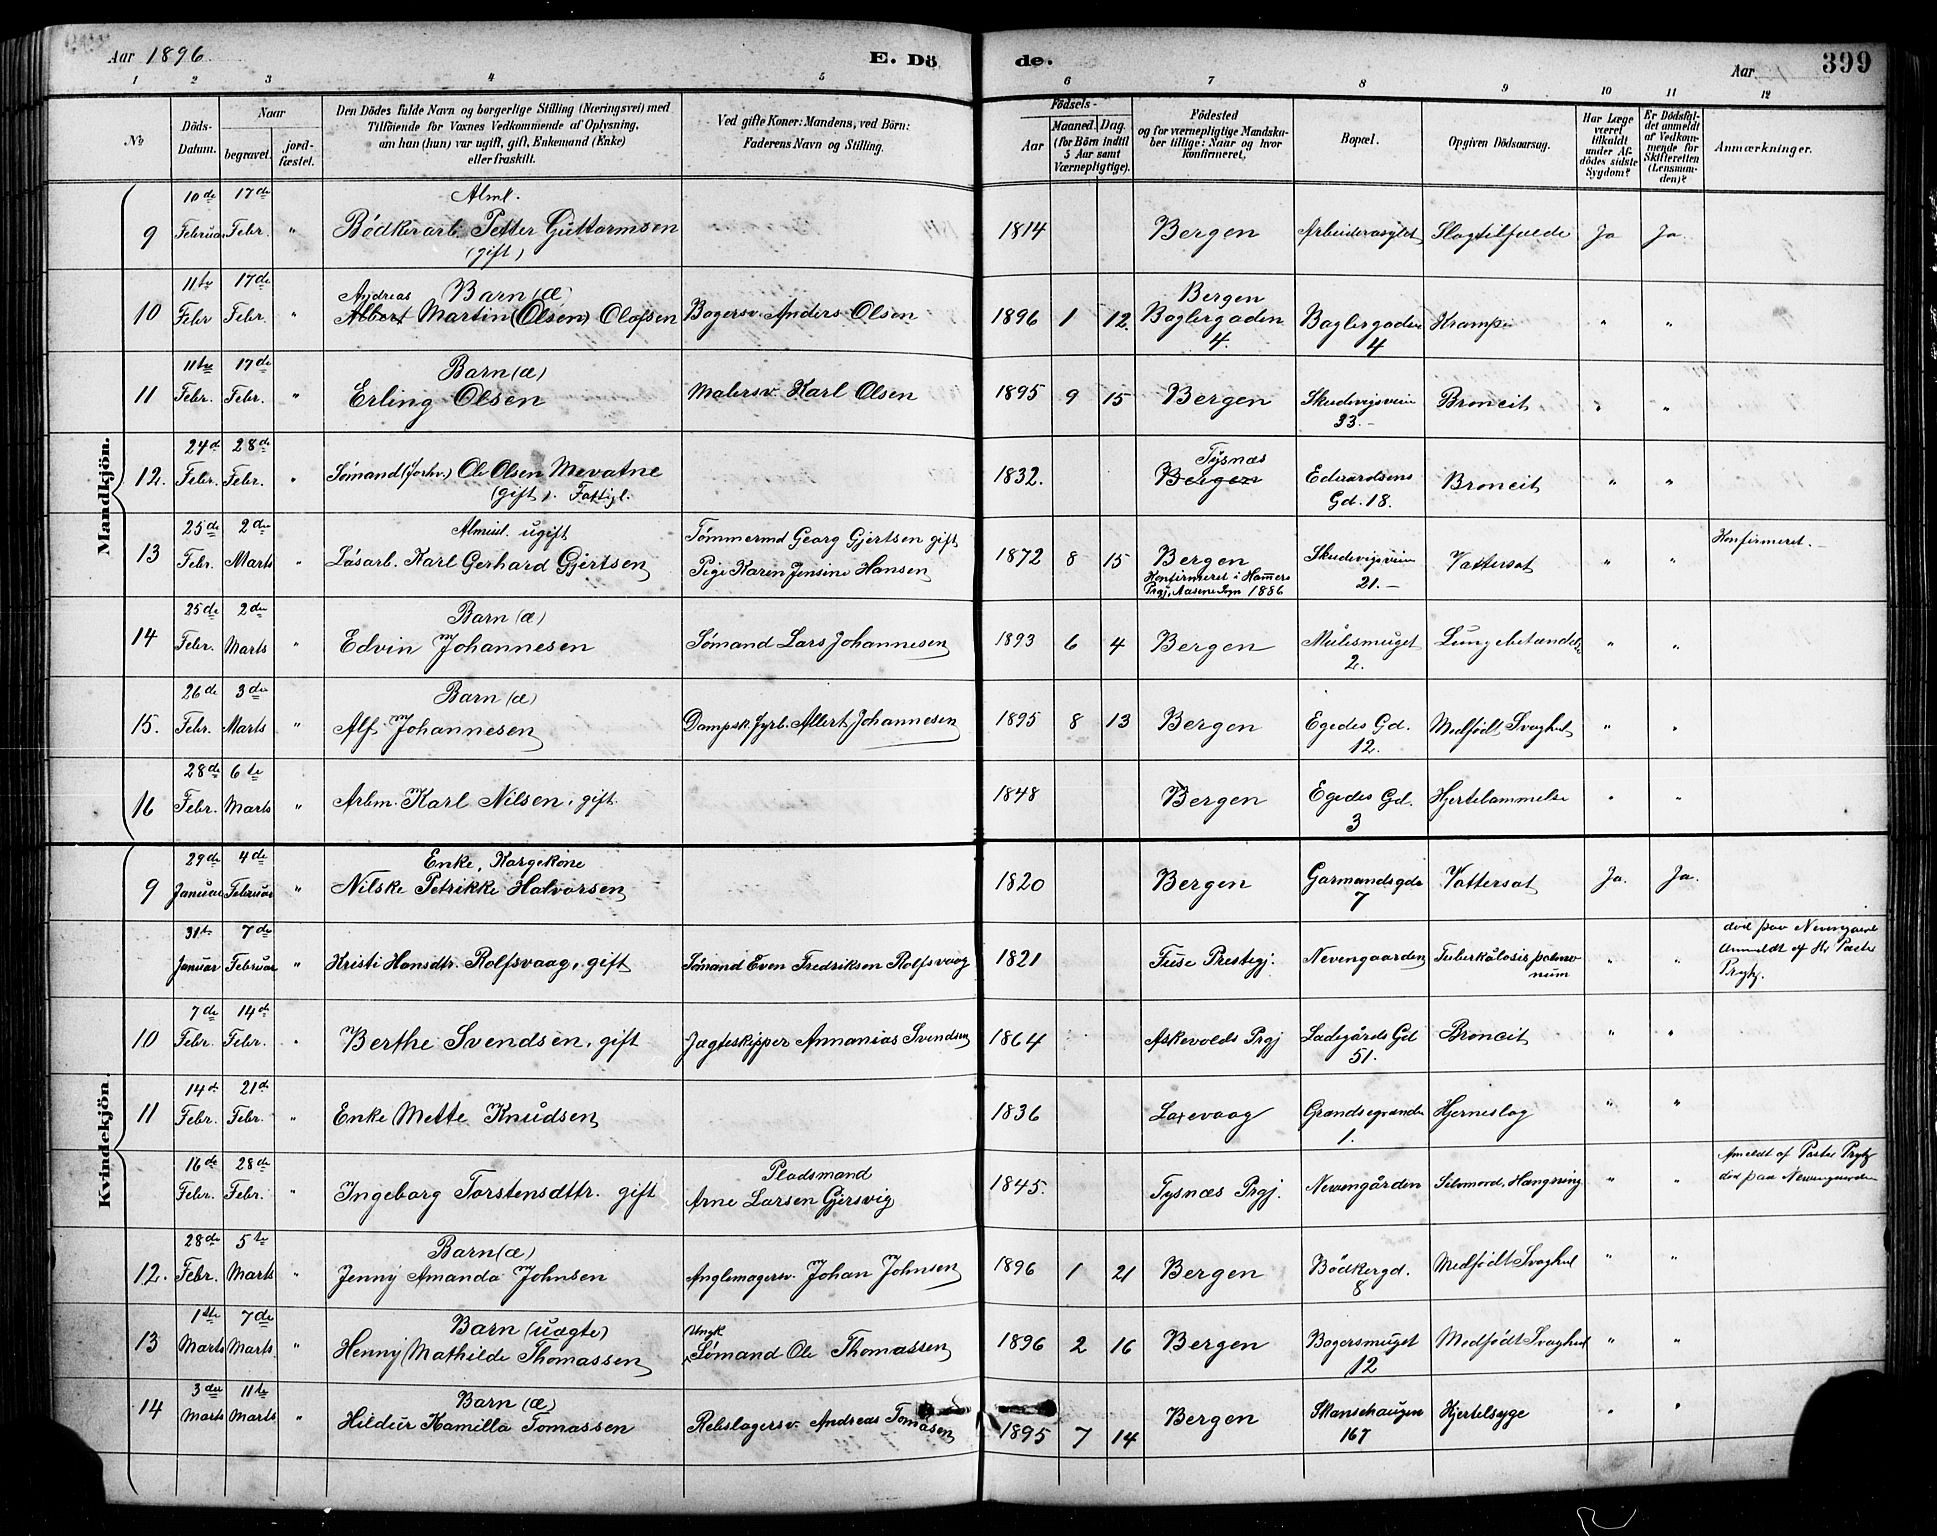 Aar 1896
E. Dö
de.
Aar
399
1 2 3 4 5 6 7 8 9 10 11 12
No
Döds-Datum.
Naar
begravet.
jord-fæstet.
Den Dödes fulde Navn og borgerlige Stilling (Næringsvei) med
Tilföiende for Voxnes Vedkommende af Oplysning,
om han (hun) var ugift, gift, Enkemand (Enke)
eller fraskilt.
Ved gifte Koner: Mandens, ved Börn:
Faderens Navn og Stilling.
Födsels-
Aar
Maaned. Dag.
(for Börn indtil
5 Aar samt
Værnepligtige).
Födested
og for værnepligtige Mandska-
ber tillige: Naar og hvor
konfirmeret.
Bopæl.
Opgiven Dödsaarsag.
Har Læge
været
tilkaldt
under Af-
dödes sidste
Sygdom?
Er Dödsfal-
det anmeldt
af Vedkom-
mende for
Skifteretten
(Lensman-
den)?
Anmærkninger.
Mandkjön.
10de 17de Alml.
9 Februar Febr. " Bødkerarb. Petter Guttormsen 1814 Bergen Arbeiderasylet Slagtilfælde Ja Ja
(gift)
11te 17de Andreas Barn (æ) Bergen
10 Febr Febr. " Albert Martin (Olsen) Olafsen Bagersv. Anders Olsen 1896 1 12. Baglergaden Baglergaden Krampe " "
4. 4
11te 17de Barn (æ)
11 Febr. Febr. " Erling Olsen Malersv. Karl Olsen 1895 9 15 Bergen Skudevigsveien Broncit " "
33.-
24d 28de Tysnæs
12. Febr. Febr. " Sømand (forhv.) Ole Olsen Mevatne 1832. Bergen Edvardsens Broncit " "
(gift). Fattigl. Gd. 18.
25de 2de Almiul. ugift Tømmermd Georg Gjertsen gift Konfirmeret.-
13 Febr. Marts " Løsarb. Karl Gerhard Gjertsen Pige Karen Jensine Hansen 1872 8 15 Bergen Skudevigsveien Vattersot " "
Konfirmeret i Hammers 21.-
Prgj, Aasene Sogn 1886
25de 2de Barn (æ)
14 Febr. Marts " Edvin Johannesen Sømand Lars Johannesen 1893 6 4 Bergen Mulesmuget Lungebetændelse " "
2.
26de 3de Barn (æ)
15. Febr. Marts " Alf Johannesen Dampsk.fyrb. Albert Johannesen 1895 8 13 Bergen Egedes Gd. Medfødt Svaghed " "
12.
28de 6te
16 Febr. Marts " Arbm. Karl Nilsen, gift. 1848 Bergen Egedes Gd. Hjertelammelse " "
3
Kvindekjön.
29de 4de Enke, Kurgekone
9 Januar Februar " Nilske Petrikke Halvorsen 1820 Bergen Garmandsgdr Vattersot Ja. Ja.
7
31te 7de død paa Nevengaard
Januar Februar " Kristi Hansdtr. Rolfsvaag, gift Sømand Even Fredriksen Rolfsvaag 1821 Fuse Prestegj. Nevengaarden Tuberkulosis pulmo- " " Anmeldt af Hr Pastor
num Prytz.
7de 14de
10 Febr. Febr. " Berthe Svendsen, gift Jægteskipper Annanias Svendsen 1864 Askevolds Prgj Ladegårds Gd Broncit " "
51.
14d 21de
11 Febr. Febr. " Enke Mette Knudsen 1836 Laxevaag Grændsegrænden Hjerneslag " "
1.
16de 28de Pladsmand Ameldt af Pastor Prytz
Febr. Febr. " Ingeborg Torstensdttr. gift Arne Larsen Gjersvig 1845. Tysnæs Prgj. Nevengården Selvmord, Hængning " " død paa Nevengaarden
28de 5te Barn (æ)
12. Febr. Marts " Jenny Amanda Johnsen Anglemagersv. Johan Johnsen 1896 1 21 Bergen Bødkergd. Medfødt Svaghed " "
8
1ste 7de Barn (uægte) Ungk
13 Marts Marts. " Henny Mathilde Thomassen Sømand Ole Thomassen 1896 2 16 Bergen Bagersmuget Medfødt Svaghed " "
12
3die 11te Barn (æ)
14 Marts Marts " Hildur Kamilla Tomassen Rebslagersv. Andreas Tomasen 1895 7 14 Bergen Skansehaugen Hjertesyge " "
167